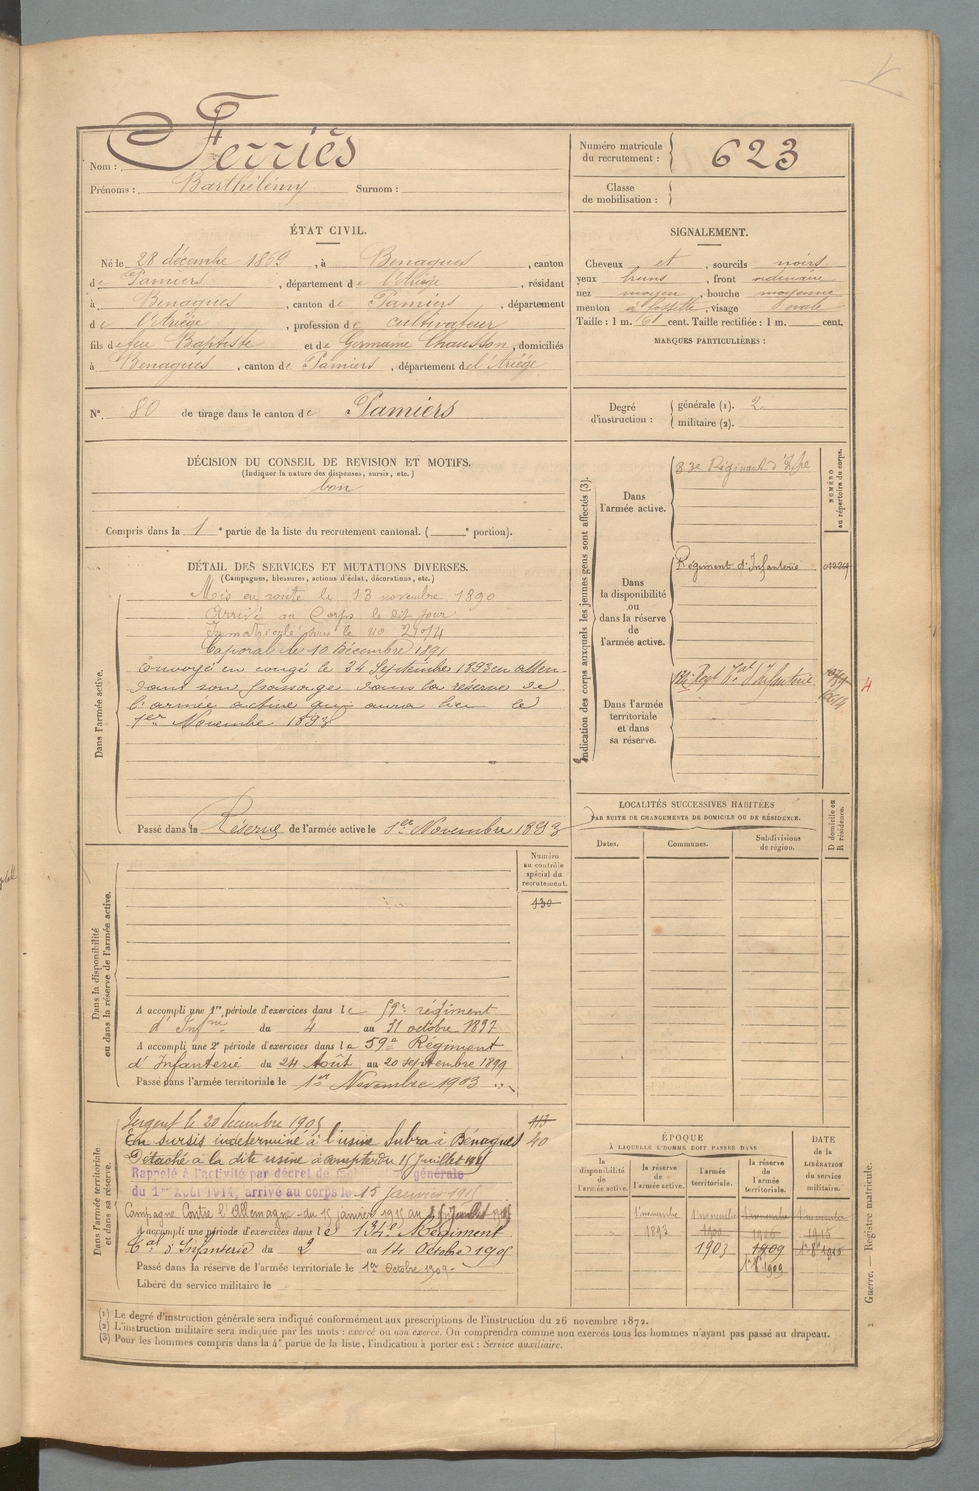 Nom : Ferriès
Prénoms : Barthélémy Surnom :
Numéro matricule du recrutement : 623
Classe de mobilisation :
ÉTAT CIVIL.
Né le 28 décembre 1869, à Benagues, canton
de Pamiers, département de l'Ariège, résidant
à Benagues, canton de Pamiers, département
de l'Ariège, profession de cultivateur
fils de feu Baptiste et de Germaine Chausson, domiciliés
à Benagues, canton de Pamiers, département de l'Ariège
N° 80 de tirage dans le canton de Pamiers
SIGNALEMENT.
Cheveux et, sourcils noirs
yeux bruns, front ordinaire
nez moyen, bouche moyenne
menton à fossette, visage ovale
Taille : 1 m. 61 cent. Taille rectifiée : 1 m. cent.
MARQUES PARTICULIÈRES :
Degré d'instruction : générale (1). 2
militaire (2).
DÉCISION DU CONSEIL DE REVISION ET MOTIFS.
(Indiquer la nature des dispenses, sursis, etc.)
bon
Compris dans la 1e partie de la liste du recrutement cantonal. ( e portion).
DÉTAIL DES SERVICES ET MUTATIONS DIVERSES.
(Campagnes, blessures, actions d'éclat, décorations, etc.)
Dans l'armée active.
Mis en route le 13 novembre 1890
Arrivé au Corps le dit jour
Immatriculé sous le no
Caporal le 10 Décembre 1891
Envoyé en congé le Septembre 1893 en atten-
dant son passage dans la réserve de
l'armée active qui aura lieu le
1er Novembre 1893
Passé dans la Réserve de l'armée active le 1er Novembre 1893
Indication des corps auxquels les jeunes gens sont affectés (3).
NUMÉRO au répertoire du corps.
Dans l'armée active.
Régiment d'Infie
Dans la disponibilité ou dans la réserve de l'armée active.
Régiment d'Infanterie
Dans l'armée territoriale et dans sa réserve.
Regt d'Infanterie
4
LOCALITÉS SUCCESSIVES HABITÉES
PAR SUITE DE CHANGEMENTS DE DOMICILE OU DE RÉSIDENCE.
D domicile ou R résidence.
Dates. Communes. Subdivisions de région.
Dans la disponibilité ou dans la réserve de l'armée active.
Numéro au contrôle spécial du recrutement.
130
A accompli une 1re période d'exercices dans le 59e régiment
d'Infrie du 4 au 31 octobre 1897
A accompli une 2e période d'exercices dans le 59e Régiment
d'Infanterie du 24 Août au 20 septembre 1899
Passé dans l'armée territoriale le 1er Novembre 1903
Dans l'armée territoriale et dans sa réserve.
Sergent le 20 décembre 1905
En sursis indéterminé à l'usine Subra à Bénagues
40
Détaché à la dite usine à compter du 1 Juillet
Rappelé à l'activité par décret de mobilisation générale
du 1er Août 1914, arrivé au corps le 15 janvier 1915
Campagne Contre l'Allemagne du 15 janvier 1915 au
A accompli une période d'exercices dans le 134e Régiment
tal d'Infanterie du 2 au 14 Octobre 1905
Passé dans la réserve de l'armée territoriale le 1er Octobre 1909
Libéré du service militaire le
ÉPOQUE
À LAQUELLE L'HOMME DOIT PASSER DANS
la disponibilité de l'armée active.
la réserve de l'armée active.
l'armée territoriale.
la réserve de l'armée territoriale.
DATE de la LIBÉRATION du service militaire.
1 novembre 1893
1 novembre 1900
1903
1 novembre 1906
1909
1r 8bre 1909
1 novembre 1915
(1) Le degré d'instruction générale sera indiqué conformément aux prescriptions de l'instruction du 26 novembre 1872.
(2) L'instruction militaire sera indiquée par les mots : exercé ou non exercé. On comprendra comme non exercés tous les hommes n'ayant pas passé au drapeau.
(3) Pour les hommes compris dans la 4e partie de la liste, l'indication à porter est : Service auxiliaire.
Guerre. — Registre matricule.